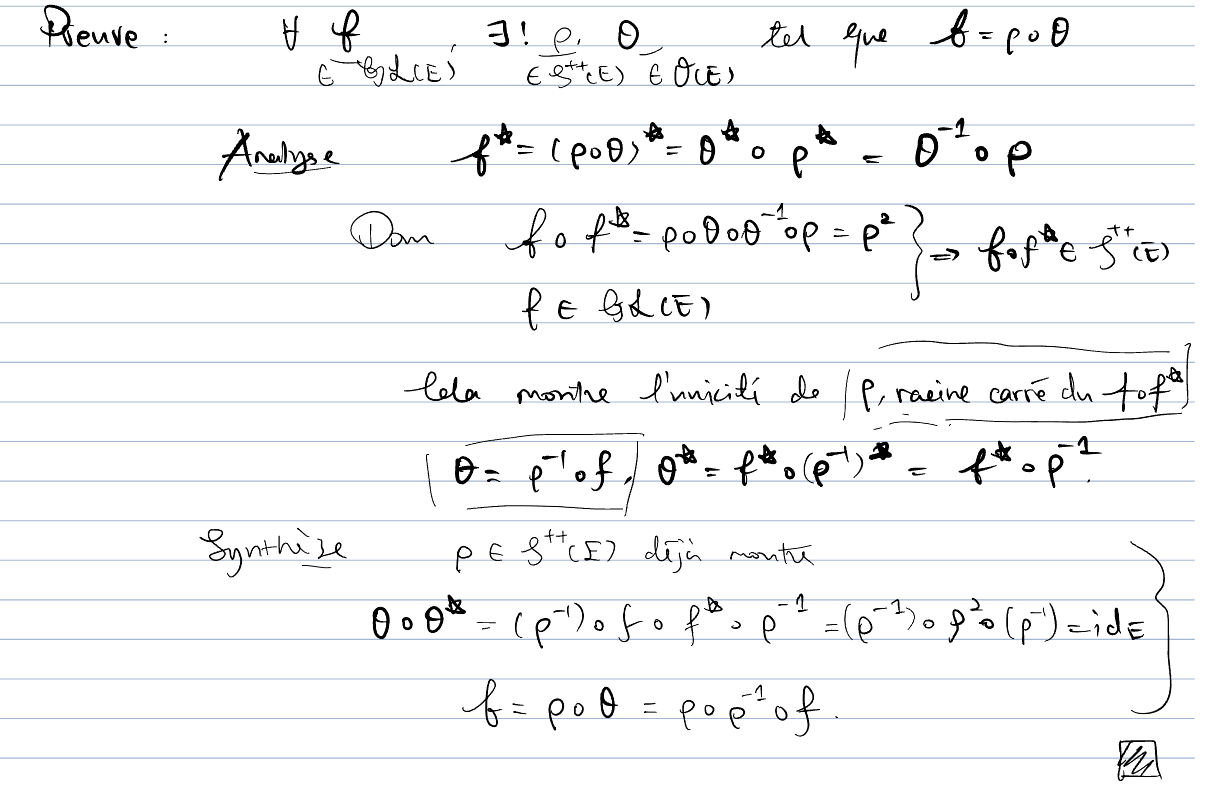 Preuve : ∀ f ∈ GL(E), ∃! ρ ∈ S⁺⁺(E), θ ∈ O(E) tel que f = ρ∘θ
Analyse f* = (ρ∘θ)* = θ*∘ρ* = θ⁻¹∘ρ
Donc f∘f* = ρ∘θ∘θ⁻¹∘ρ = ρ² } ⇒ f∘f* ∈ S⁺⁺(E)
f ∈ GL(E)
Cela montre l'unicité de ρ, racine carré du f∘f*
θ = ρ⁻¹∘f, θ* = f*∘(ρ⁻¹)* = f*∘ρ⁻¹.
Synthèze ρ ∈ S⁺⁺(E) déjà montré
θ∘θ* = (ρ⁻¹)∘f∘f*∘ρ⁻¹ = (ρ⁻¹)∘ρ²∘(ρ⁻¹) = id_E
f = ρ∘θ = ρ∘ρ⁻¹∘f.